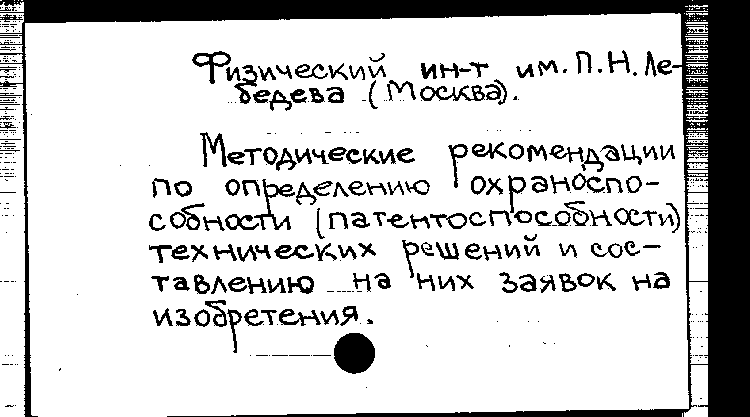 Физический ин-т им. П.Н. Ле-
бедева (Москва).
Методические рекомендации
по определению охраноспо-
собности (патентоспособности)
технических решений и сос-
тавлению на них заявок на
изобретения.